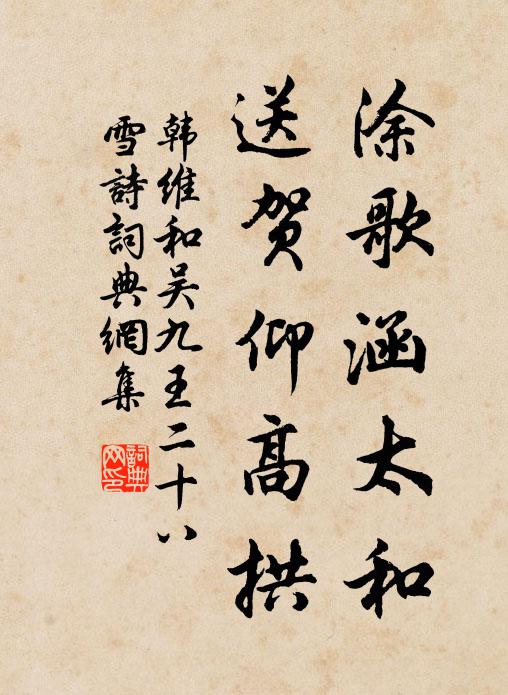 涂歌涵太和
送贺仰高拱
韩维和吴九王二十八
雪詩詞典網集
詞典网印